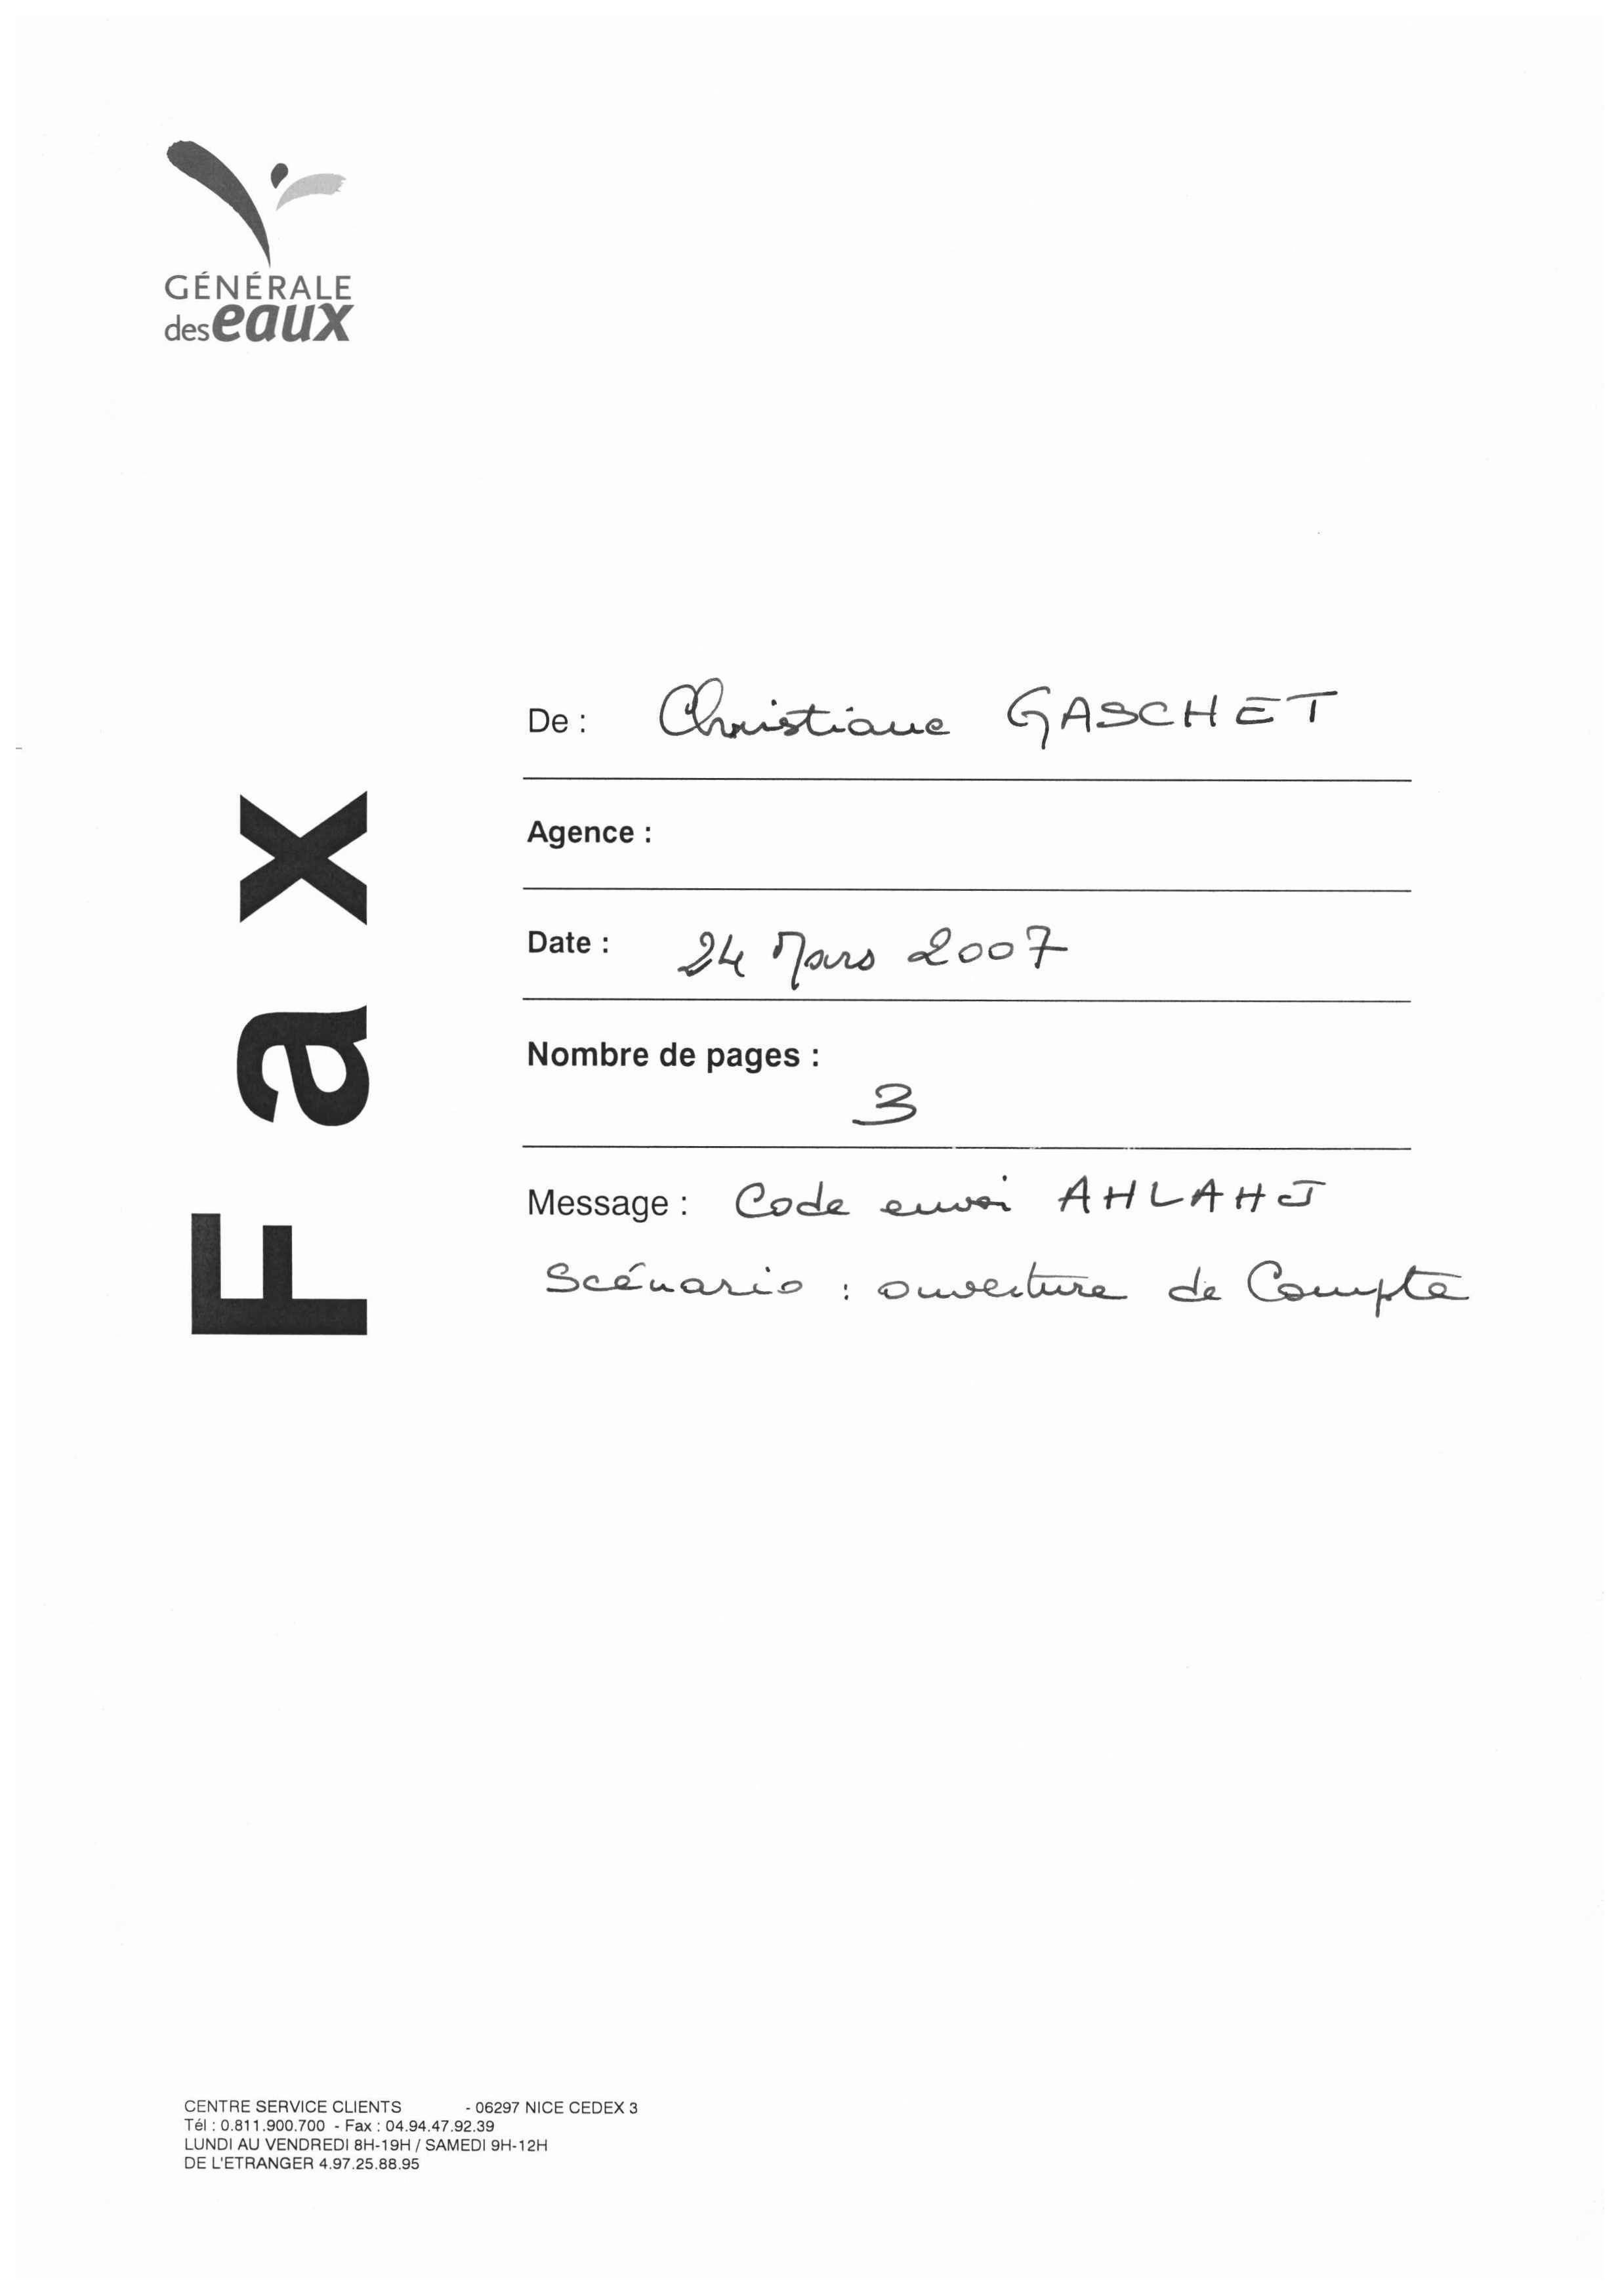 GÉNÉRALE
des eaux
Fax
De : Christiane GASCHET
Agence :
Date : 24 Mars 2007
Nombre de pages :
3
Message : Code envoi AHLAHJ
Scénario : ouverture de Compte
CENTRE SERVICE CLIENTS - 06297 NICE CEDEX 3
Tél : 0.811.900.700 - Fax : 04.94.47.92.39
LUNDI AU VENDREDI 8H-19H / SAMEDI 9H-12H
DE L'ETRANGER 4.97.25.88.95